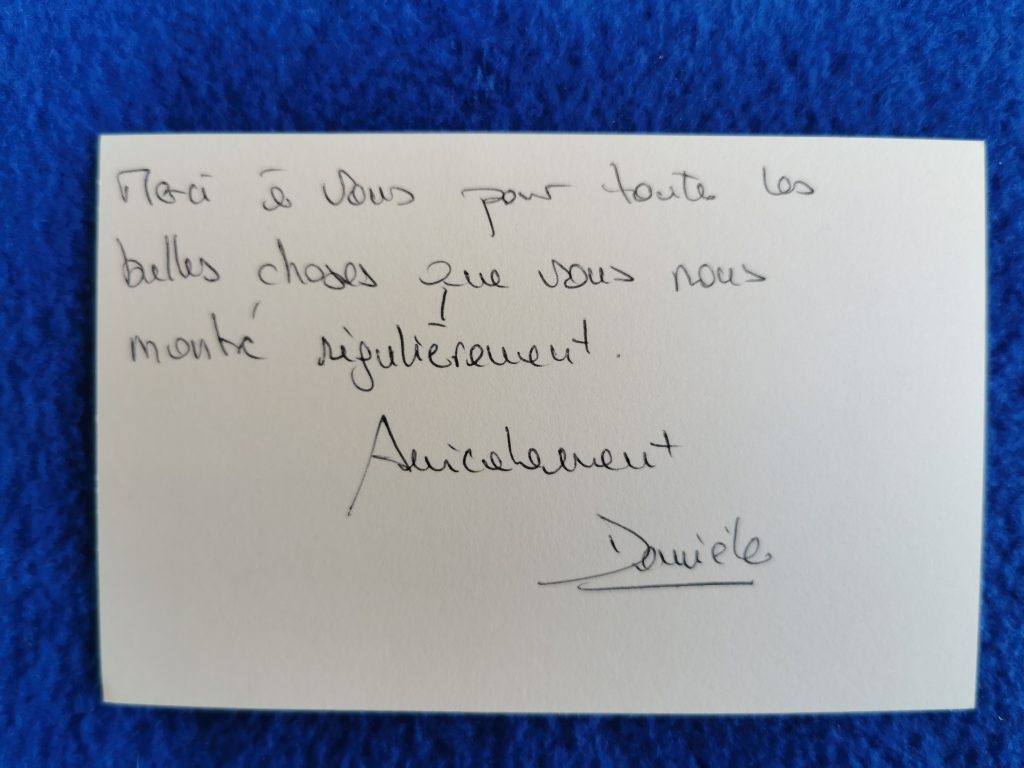 Merci à vous pour toute les
belles choses que vous nous
montré régulièrement.
Amicalement
Danièle